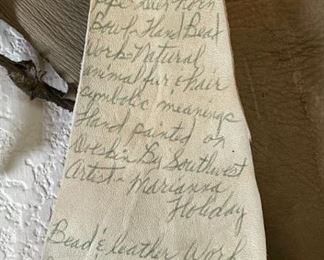 Pipe Deer Horn
Bowl - Hand Bead
Work - Natural
animal fur & hair
symbolic meanings
Hand painted on
Doeskin By Southwest
Artist - Marianna
Holiday
Bead & leather Work